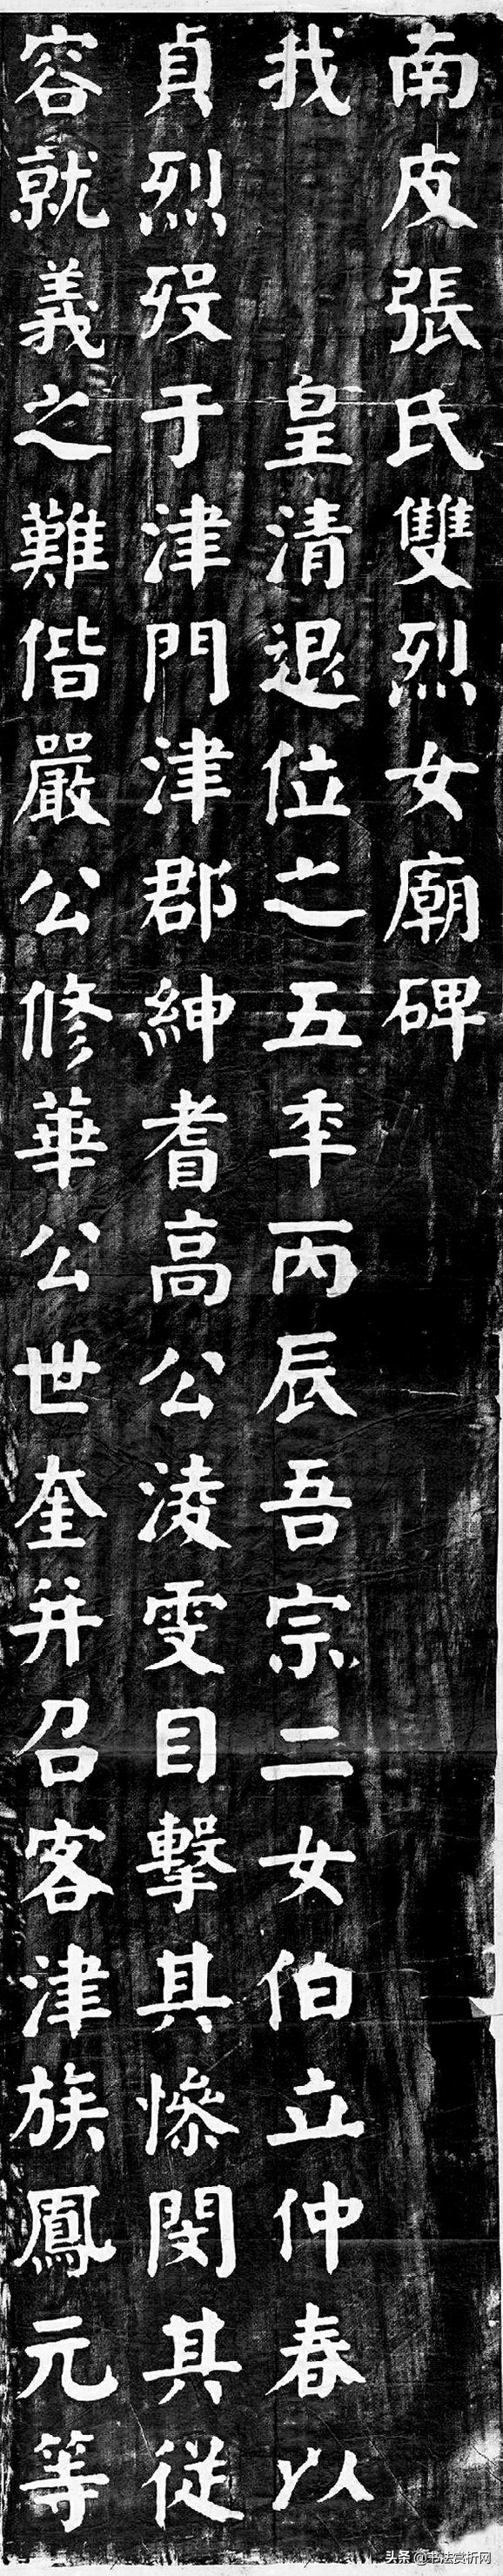 南皮張氏雙烈女廟碑
我 皇清退位之五年丙辰吾宗二女伯立仲春以
貞烈歿于津門津郡紳耆高公淩雯目擊其慘閔其從
容就義之難偕嚴公修華公世奎并召客津族鳳元等
头条 @书法赏析网